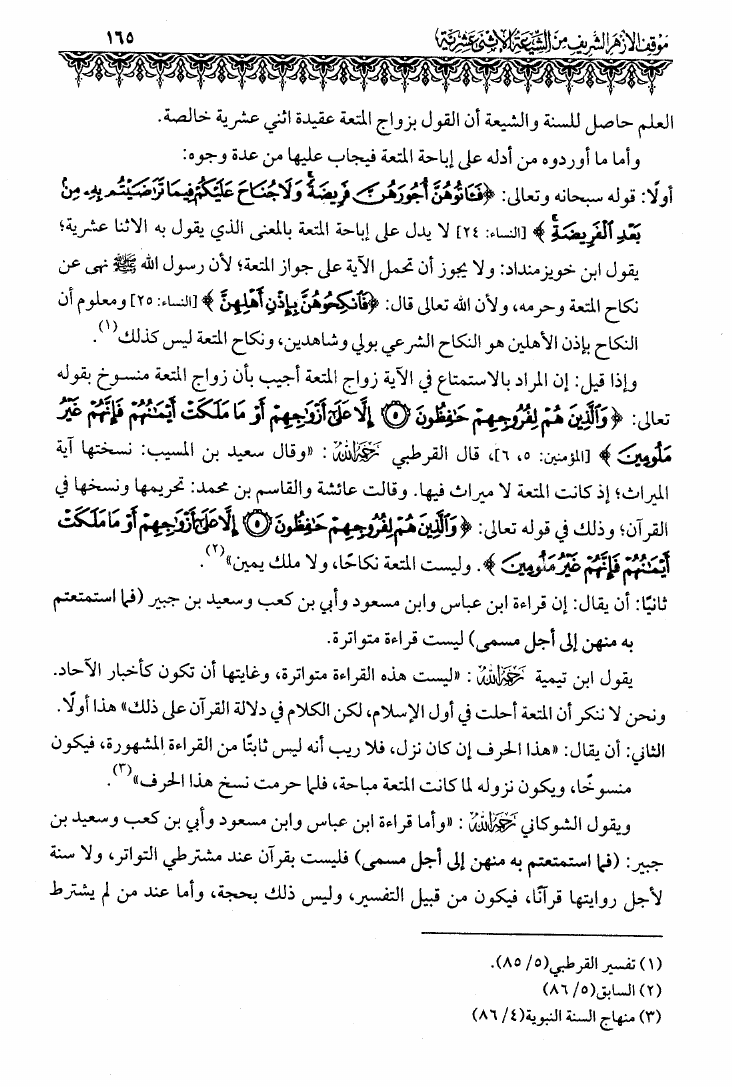 موقف الأزهر الشريف من الشيعة الاثنى عشرية ١٦٥
العلم حاصل للسنة والشيعة أن القول بزواج المتعة عقيدة اثني عشرية خالصة.
وأما ما أوردوه من أدله على إباحة المتعة فيجاب عليها من عدة وجوه:
أولًا: قوله سبحانه وتعالى: ﴿فَـَٔاتُوهُنَّ أُجُورَهُنَّ فَرِيضَةً ۚ وَلَا جُنَاحَ عَلَيْكُمْ فِيمَا تَرَٰضَيْتُم بِهِۦ مِنۢ
بَعْدِ ٱلْفَرِيضَةِ ۚ﴾ [النساء: ٢٤] لا يدل على إباحة المتعة بالمعنى الذي يقول به الاثنا عشرية؛
يقول ابن خويزمنداد: ولا يجوز أن تحمل الآية على جواز المتعة؛ لأن رسول الله ﷺ نهى عن
نكاح المتعة وحرمه، ولأن الله تعالى قال: ﴿فَٱنكِحُوهُنَّ بِإِذْنِ أَهْلِهِنَّ﴾ [النساء: ٢٥] ومعلوم أن
النكاح بإذن الأهلين هو النكاح الشرعي بولي وشاهدين، ونكاح المتعة ليس كذلك»(١).
وإذا قيل: إن المراد بالاستمتاع في الآية زواج المتعة أجيب بأن زواج المتعة منسوخ بقوله
تعالى: ﴿وَٱلَّذِينَ هُمْ لِفُرُوجِهِمْ حَٰفِظُونَ ۝٥ إِلَّا عَلَىٰٓ أَزْوَٰجِهِمْ أَوْ مَا مَلَكَتْ أَيْمَٰنُهُمْ فَإِنَّهُمْ غَيْرُ
مَلُومِينَ﴾ [المؤمنين: ٥، ٦]، قال القرطبي رحمه الله: «وقال سعيد بن المسيب: نسختها آية
الميراث؛ إذ كانت المتعة لا ميراث فيها. وقالت عائشة والقاسم بن محمد: تحريمها ونسخها في
القرآن؛ وذلك في قوله تعالى: ﴿وَٱلَّذِينَ هُمْ لِفُرُوجِهِمْ حَٰفِظُونَ ۝٥ إِلَّا عَلَىٰٓ أَزْوَٰجِهِمْ أَوْ مَا مَلَكَتْ
أَيْمَٰنُهُمْ فَإِنَّهُمْ غَيْرُ مَلُومِينَ﴾. وليست المتعة نكاحًا، ولا ملك يمين»(٢).
ثانيًا: أن يقال: إن قراءة ابن عباس وابن مسعود وأبي بن كعب وسعيد بن جبير (فما استمتعتم
به منهن إلى أجل مسمى) ليست قراءة متواترة.
يقول ابن تيمية رحمه الله: «ليست هذه القراءة متواترة، وغايتها أن تكون كأخبار الآحاد.
ونحن لا ننكر أن المتعة أحلت في أول الإسلام، لكن الكلام في دلالة القرآن على ذلك» هذا أولًا.
الثاني: أن يقال: «هذا الحرف إن كان نزل، فلا ريب أنه ليس ثابتًا من القراءة المشهورة، فيكون
منسوخًا، ويكون نزوله لما كانت المتعة مباحة، فلما حرمت نسخ هذا الحرف»(٣).
ويقول الشوكاني رحمه الله: «وأما قراءة ابن عباس وابن مسعود وأبي بن كعب وسعيد بن
جبير: (فما استمتعتم به منهن إلى أجل مسمى) فليست بقرآن عند مشترطي التواتر، ولا سنة
لأجل روايتها قرآنًا، فيكون من قبيل التفسير، وليس ذلك بحجة، وأما عند من لم يشترط
(١) تفسير القرطبي(٥/ ٨٥).
(٢) السابق(٥/ ٨٦)
(٣) منهاج السنة النبوية(٤/ ٨٦)